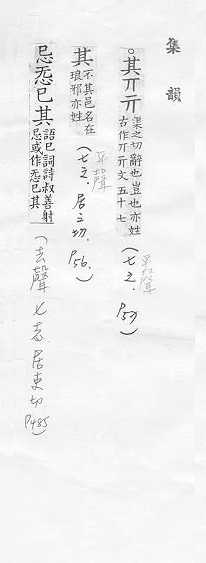 集韻
。其丌亓 渠之切辭也豈也亦姓
古作丌亓文五十七 (七之. 平聲 P53)
其 不其邑名在
琅邪亦姓 (七之. 居之切. 平聲 P56.)
忌忥已其 語已詞詩叔善射
忌或作忥已其 (去聲 七志 居吏切 P485)